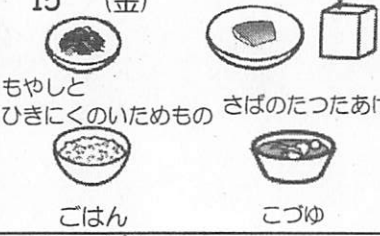 15 (金)
もやしと
ひきにくのいためもの
さばのたつたあげ
ごはん
こづゆ